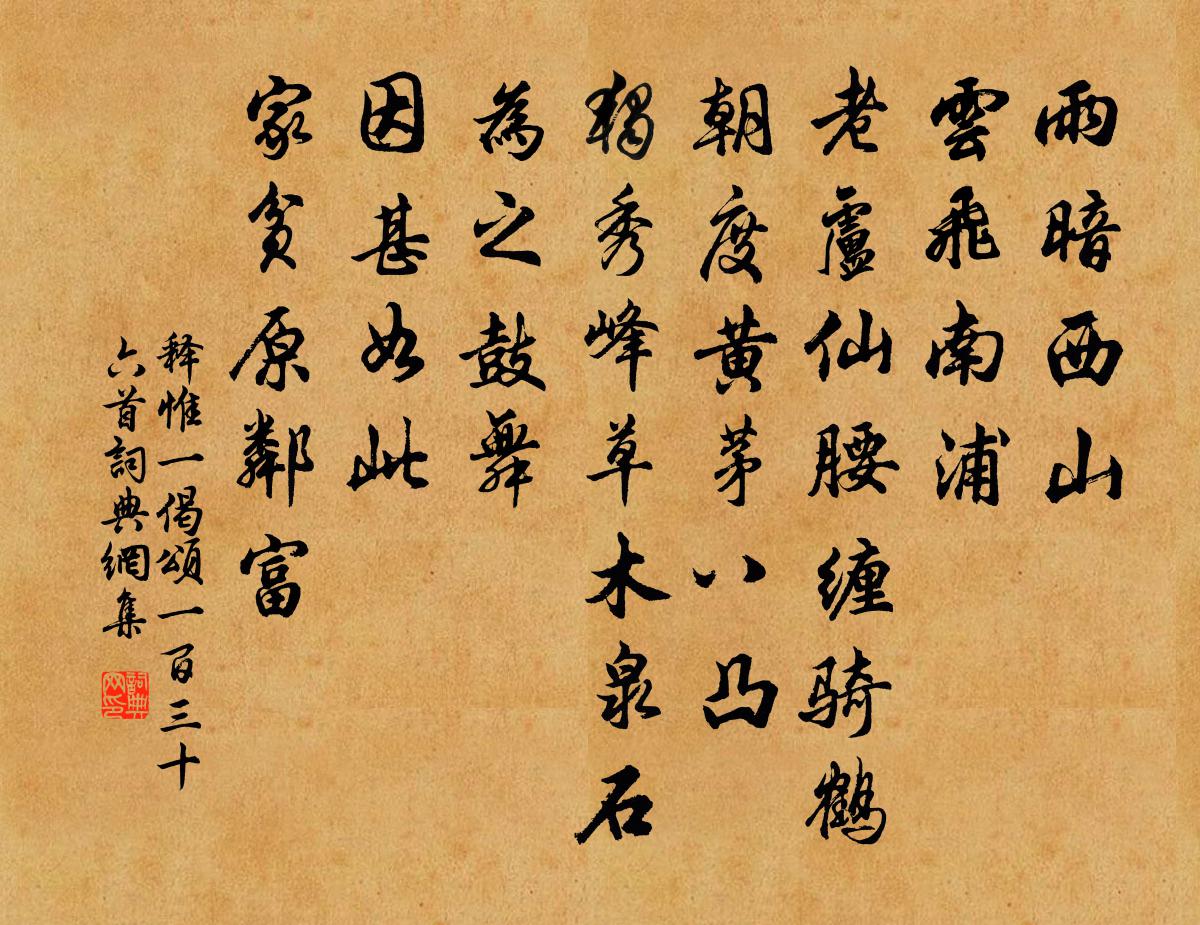 雨暗西山
雲飛南浦
老盧仙腰缠骑鶴
朝度黃茅八凸
獨秀峰草木泉石
為之鼓舞
因甚如此
家貧原鄰富
释惟一偈頌一百三十
六首詞典網集
詞典
网印